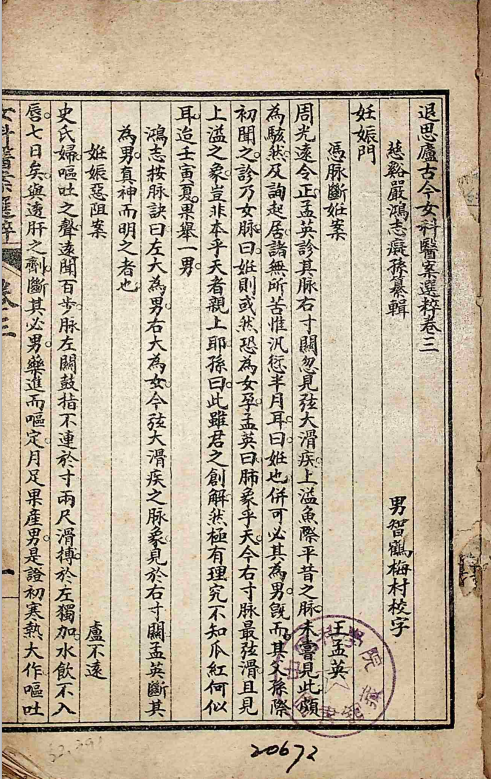 退思廬古今女科醫案選粹卷三
慈谿嚴鴻志癡孫纂輯 男智鶴梅村校字
妊娠門
憑脈斷姙案 王孟英
周光遠令正孟英診其脈右寸關忽見弦大滑疾上溢魚際平昔之脈未嘗見此頗
為駭然及詢起居諸無所苦惟汎愆半月耳曰姙也併可必其為男旣而其父孫際
初聞之診乃女脈曰姙則或然恐為女孕孟英曰肺象乎天今右寸脈最弦滑且見
上溢之象豈非本乎天者親上耶孫曰此雖君之創解然極有理究不知瓜紅何似
耳迨壬寅夏果舉一男
鴻志按脈訣曰左大為男右大為女今弦大滑疾之脈象見於右寸關孟英斷其
為男眞神而明之者也
姙娠惡阻案 盧不遠
史氏婦嘔吐之聲遠聞百步脈左關鼓指不連於寸兩尺滑摶於左獨加水飲不入
唇七日矣與透肝之劑斷其必男藥進而嘔定月足果產男是證初寒熱大作嘔吐
女科醫案選粹 卷三 一
20672